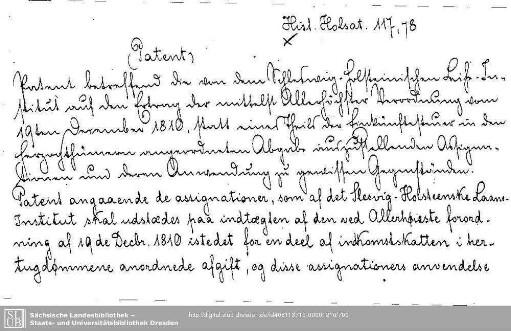 Hist. Holsat. 117,78
(Patent)
Patent betreffend die von dem Schleswig-Holsteinischen Leih-In-
stitut auf den Ertrag der mittelst Allerhöchster Verordnung vom
19ten December 1810, statt eines Theils der Einkünftesteuer in den
Herzogthümern angeordneten Abgabe auszustellenden Assigna-
tionen und deren Anwendung zu gewissen Gegenständen.
Patent angaaende de assignationer, som af det Slesvig-Holsteenske Laane-
Institut skal udstædes paa indtægten af den ved Allerhøieste forord-
ning af 19 de Decbr. 1810 istedet for en deel af inkomstskatten i her-
tugdømmene anordnede afgift, og disse assignationers anvendelse
SLUB
Sächsische Landesbibliothek –
Staats- und Universitätsbibliothek Dresden